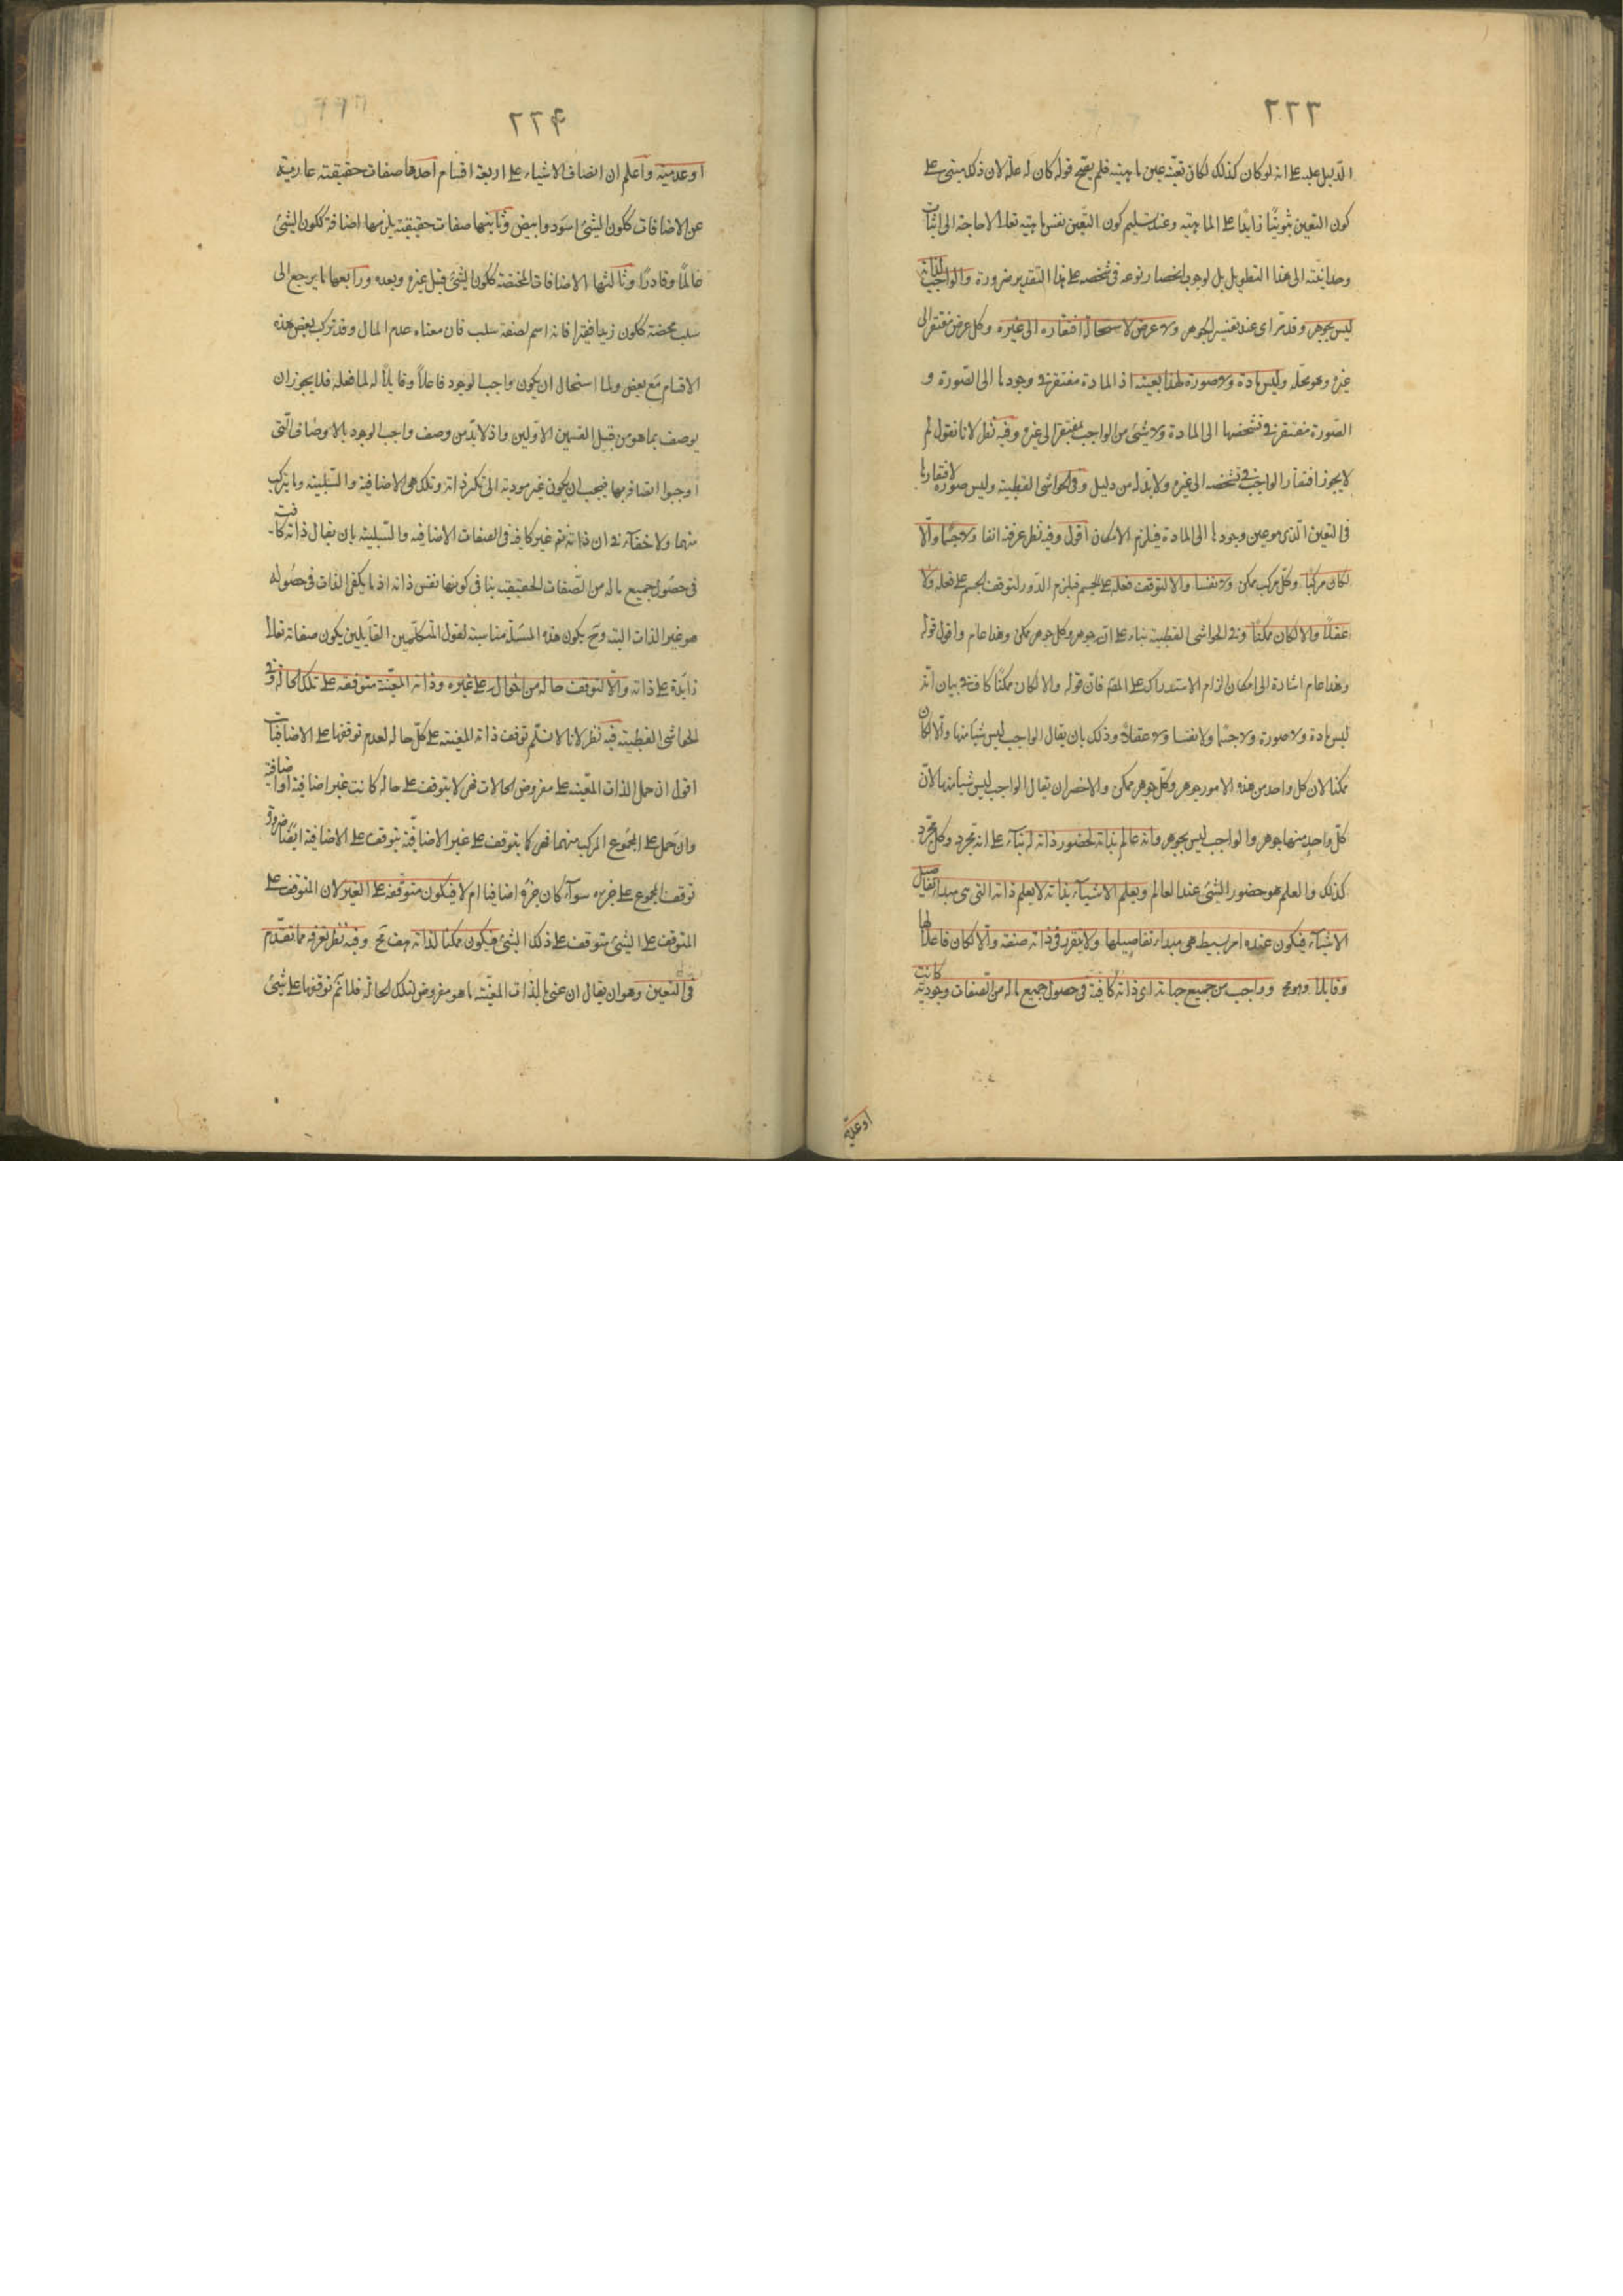 ٢٢٣
الدليل عليه على انه لو كان كذلك لكان تعينه عين ماهيته فلم يصح قوله كان له علة لان ذلك مبنى على
كون التعين ثبوتيا زايدا على الماهية وعند تسليم كون التعين نفس ماهيته تعالى لا حاجة الى اثبات
وحدانيته الى هذا التطويل بل لوجوب انحصار نوعه فى شخصه على هذا التقدير ضرورة والواجب لذاته
ليس بجوهر وقد مر اى عند تفسير الجوهر ولا عرض لاستحالة افتقاره الى غيره وكل عرض مفتقر الى
غيره وهو محله وليس مادة ولا صورة لهذا بعينه اذ المادة مفتقرة فى وجودها الى الصورة و
الصورة مفتقرة فى تشخصها الى المادة ولا شئ من الواجب بمفتقر الى غيره وفيه نظر لانا نقول لم
لا يجوز افتقار الواجب فى تشخصه الى غيره ولا بد له من دليل وفى الحواشى القطبية وليس صورة لافتقارها
فى التعين الذى هو عين وجودها الى المادة فيلزم الامكان اقول وفيه نظر عرفته انفا ولا جسما والا
لكان مركبا وكل مركب ممكن ولا نفسا والا لتوقف فعله على الجسم فيلزم الدور لتوقف الجسم على فعله ولا
عقلا والا لكان ممكنا وفى الحواشى القطبية بناء على انه جوهر وكل جوهر ممكن وهذا عام واقول قوله
وهذا عام اشارة الى امكان الزام الاستدراك على المص فان قوله والا لكان ممكنا كاف فى بيان انه
ليس مادة ولا صورة ولا جسما ولا نفسا ولا عقلا وذلك بان يقال الواجب ليس شيئا منها والا لكان
ممكنا لان كل واحد من هذه الامور جوهر وكل جوهر ممكن والاخصر ان يقال الواجب ليس شيئا منها لان
كل واحد منها جوهر والواجب ليس بجوهر وانه عالم بذاته لحضور ذاته له بناء على انه مجرد وكل مجرد
كذلك والعلم هو حضور الشئ عند العالم ويعلم الاشياء بذاته لا يعلم ذاته التى هى مبداء تفاصيل
الاشياء فيكون عنده امر بسيط هى مبداء تفاصيلها ولا يتقرر فى ذاته صفة والا لكان فاعلا لها
وقابلا وهو مح وواجب من جميع جهاته اى ذاته كافية فى حصول جميع ماله من الصفات وجودية كانت
اوعدمية
٢٢٤
او عدمية واعلم ان اتصاف الاشياء على اربعة اقسام احدها صفات حقيقية عارية
عن الاضافات ككون الشئ اسود وابيض وثانيها صفات حقيقية يلزمها اضافة ككون الشئ
عالما وقادرا وثالثها الاضافات المختصة ككون الشئ قبل غيره وبعده ورابعها ما يرجع الى
سلب محضة ككون زيد فقيرا فانه اسم لصفة سلب فان معناه عدم المال وقد تركب بعض هذه
الاقسام مع بعض ولما استحال ان يكون واجب الوجود فاعلا وقابلا له لما فعله فلا يجوز ان
يوصف بما هو من قبيل القسمين الاولين واذ لا بد من وصف واجب الوجود بالاوصاف التى
اوجبوا اتصافه بها فيجب ان يكون غير مودية الى تكثر ذاته وتلك هى الاضافية والسلبية وما يتركب
منهما ولا خفاء فى ان ذاته تعم غير كافية فى الصفات الاضافية والسلبية بان يقال ذاته كافية
فى حصول جميع ماله من الصفات الحقيقية ينافى كونها نفس ذاته اذ ما يكفى الذات فى حصوله
هو غير الذات البتة وح يكون هذه المسئلة مناسبة لقول المتكلمين القايلين يكون صفاته تعالى
زايدة على ذاته والا لتوقف حاله من احواله على غيره وذاته المعينة متوقفة على تلك الحالة وفى
الحواشى القطبية فيه نظر لانا لا نسلم توقف ذاته المعينة على كل حاله لعدم توقفها على الاضافيات
اقول ان حمل الذات المعينة على مفروض الحالات فهى لا يتوقف على حاله كانت غير اضافية او اضافية
وان حمل على المجموع المركب منهما فهى كما يتوقف على غير الاضافية يتوقف على الاضافية ايضا ضرورة
توقف المجموع على جزءه سواء كان جزؤا اضافيا ام لا فيكون متوقفة على الغير لان المتوقف على
المتوقف على الشئ متوقف على ذلك الشئ فيكون ممكنا لذاته هف مح وفيه نظر تعرفه مما تقدم
فى التعين وهو ان يقال ان عنى بالذات المعينة ما هو مفروض لتلك الحالة فلا نم توقفها على شئ